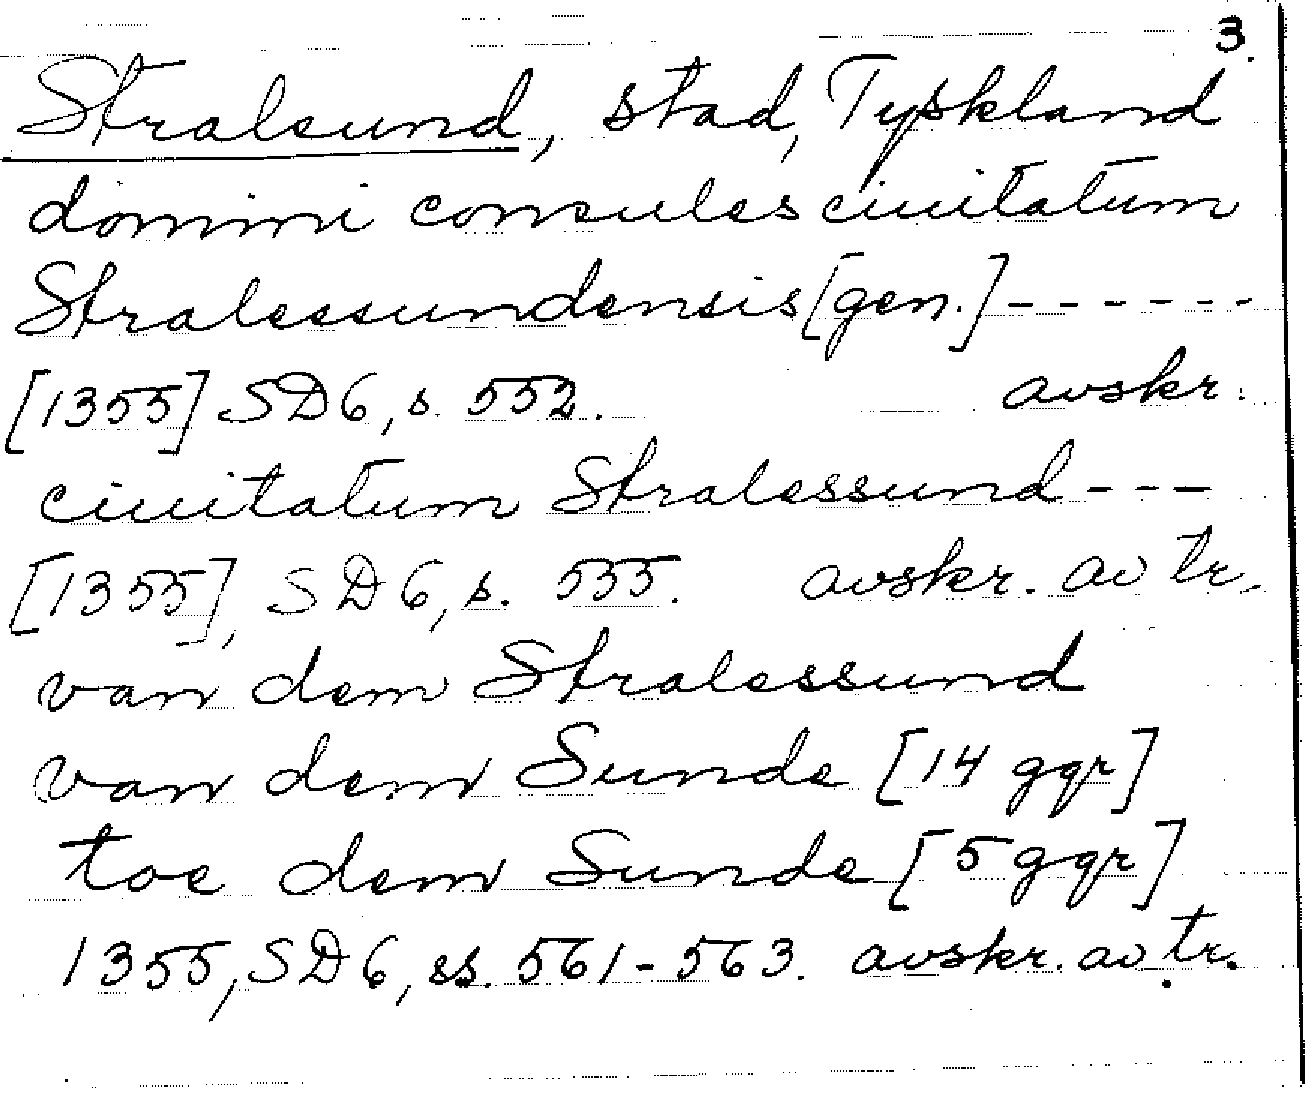 3.
Stralsund, stad, Tyskland
domini consules ciuitatum
Stralessundensis [gen.] ------
[1355] SD6, s. 552. avskr.
ciuitatum Stralessund ---
[1355], SD6, s. 555. avskr. av tr.
van dem Stralessund
van dem Sunde [14 ggr]
toe dem Sunde [5 ggr]
1355, SD6, ss. 561-563. avskr. av tr.